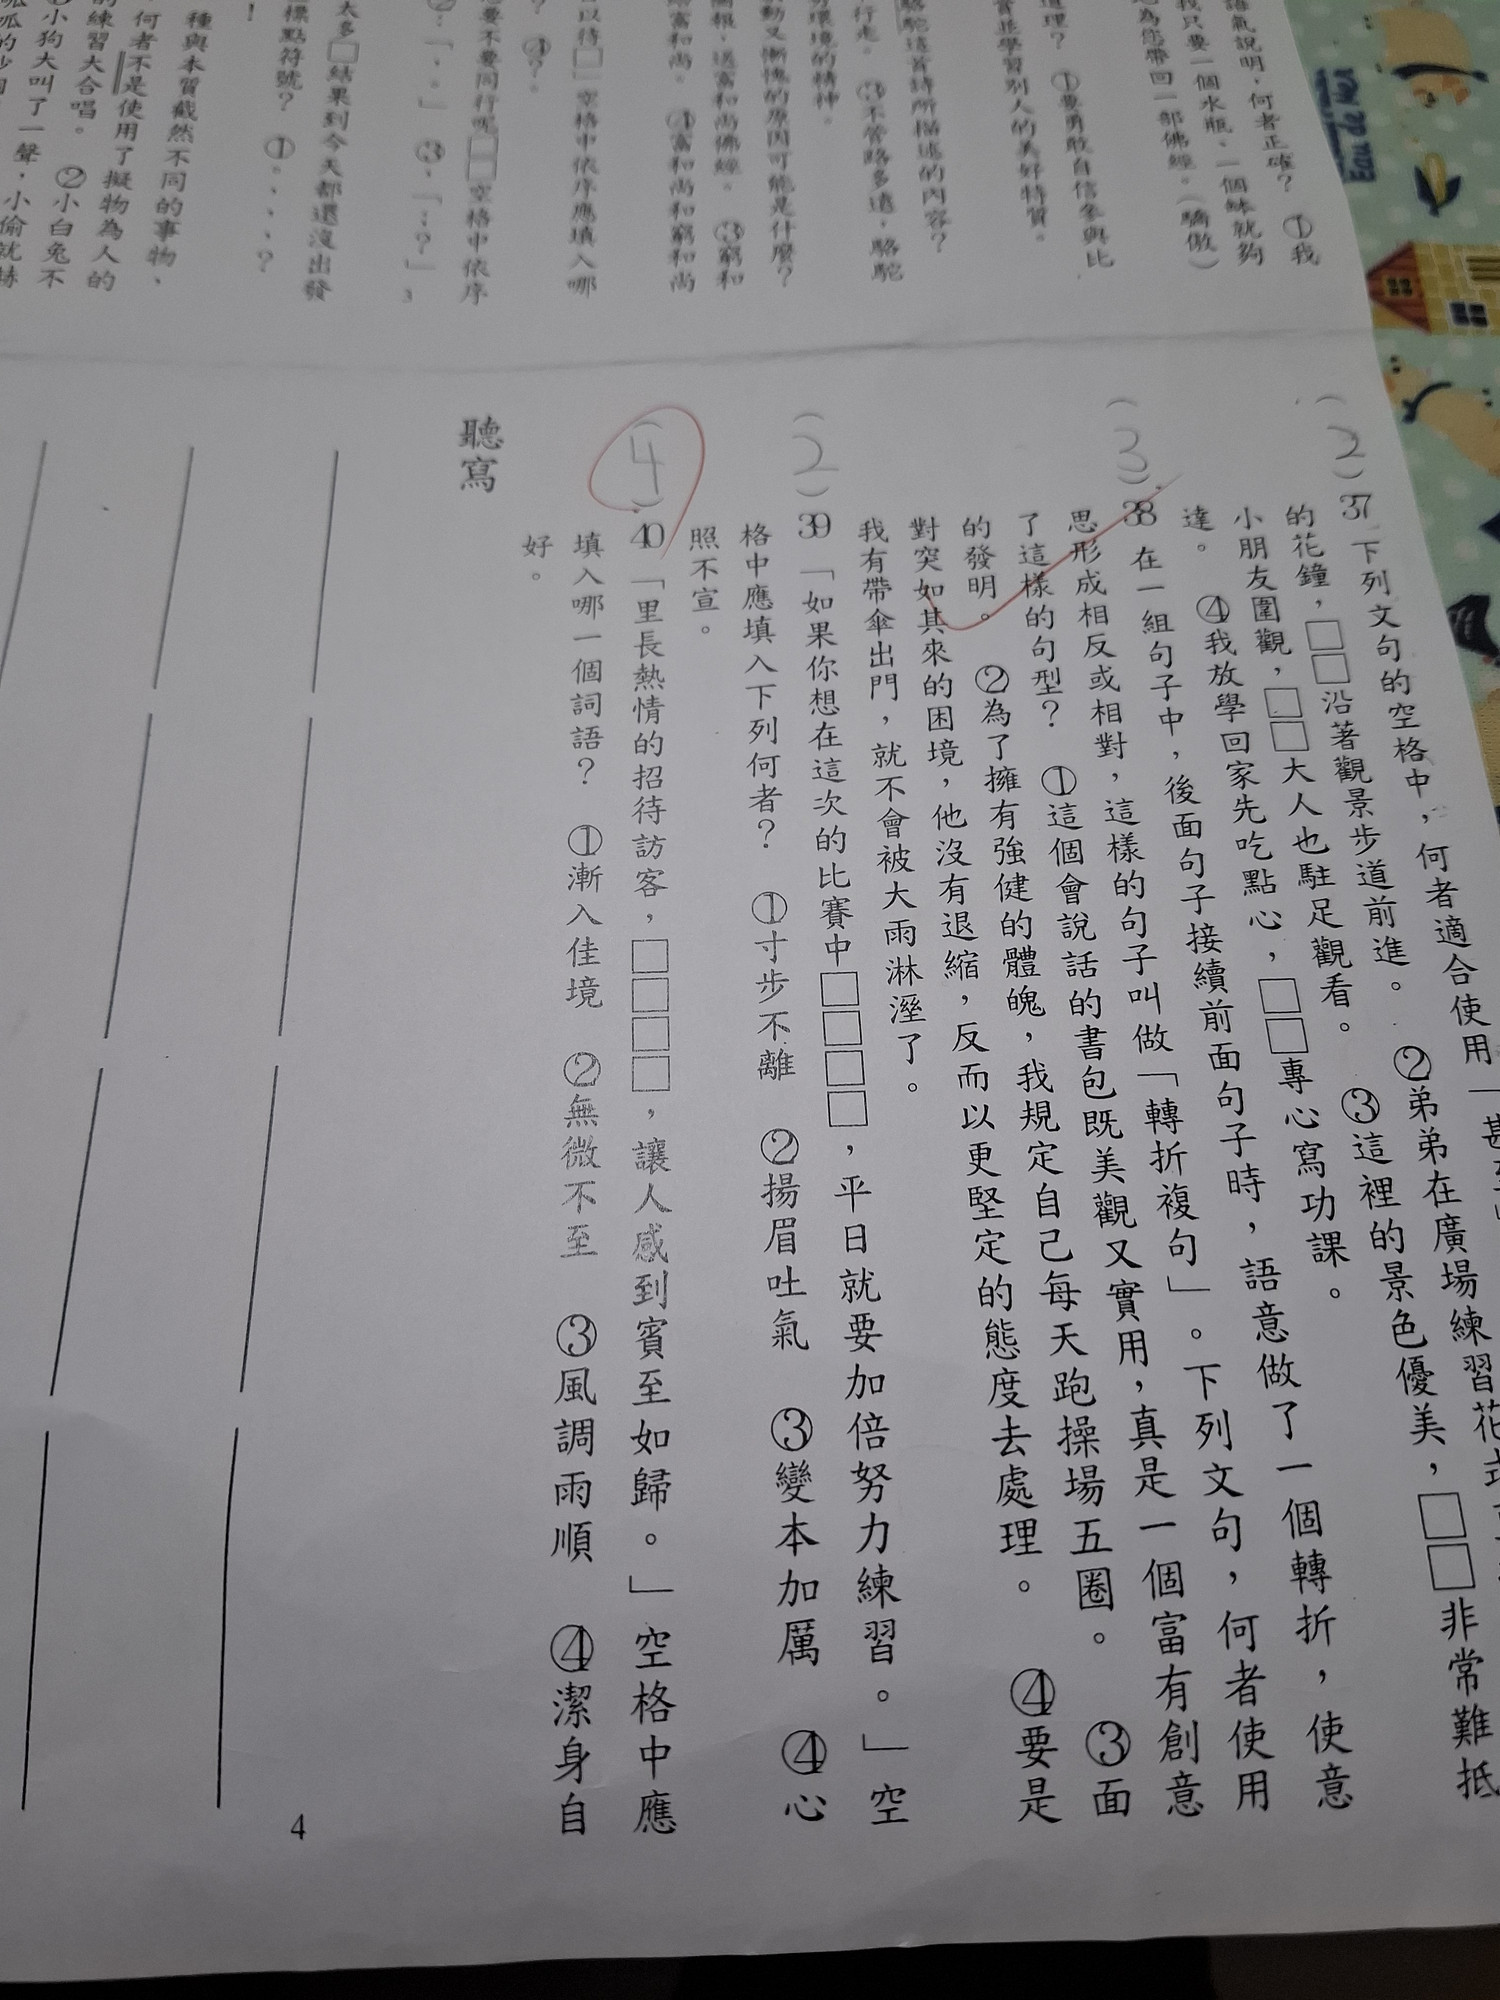 語氣說明，何者正確？　①我
我只要一個水瓶、一個缽就夠
為您帶回一部佛經。（驕傲）
道理？　①要勇敢自信參與比
並學習別人的美好特質。
駱駝這首詩所描述的內容？
行走。　③不管路多遠，駱駝
環境的精神。
動又慚愧的原因可能是什麼？
送富和尚佛經。　③窮和
富和尚。　④富和尚和窮和尚
以待□」空格中依序應填入哪
？　④？。
要不要同行呢□□空格中依序
②：「、。」　③、「；？」
3
太多□結果到今天都還沒出發
標點符號？　①。、、、？
！
種與本質截然不同的事物、
何者不是使用了擬物為人的
練習大合唱。　②小白兔不
小狗大叫了一聲，小偷就
（2）37 下列文句的空格中，何者適合使用「甚至」
的花鐘，□□沿著觀景步道前進。　②弟弟在廣場練習花式
小朋友圍觀，□□大人也駐足觀看。　③這裡的景色優美，□□非常難抵
達。　④我放學回家先吃點心，□□專心寫功課。
（3）38 在一組句子中，後面句子接續前面句子時，語意做了一個轉折，使意
思形成相反或相對，這樣的句子叫做「轉折複句」。下列文句，何者使用
了這樣的句型？　①這個會說話的書包既美觀又實用，真是一個富有創意
的發明。　②為了擁有強健的體魄，我規定自己每天跑操場五圈。　③面
對突如其來的困境，他沒有退縮，反而以更堅定的態度去處理。　④要是
我有帶傘出門，就不會被大雨淋溼了。
（2）39 「如果你想在這次的比賽中□□□□，平日就要加倍努力練習。」空
格中應填入下列何者？　①寸步不離　②揚眉吐氣　③變本加厲　④心
照不宣。
（4）40 「里長熱情的招待訪客，□□□□，讓人感到賓至如歸。」空格中應
填入哪一個詞語？　①漸入佳境　②無微不至　③風調雨順　④潔身自
好。
聽寫
4